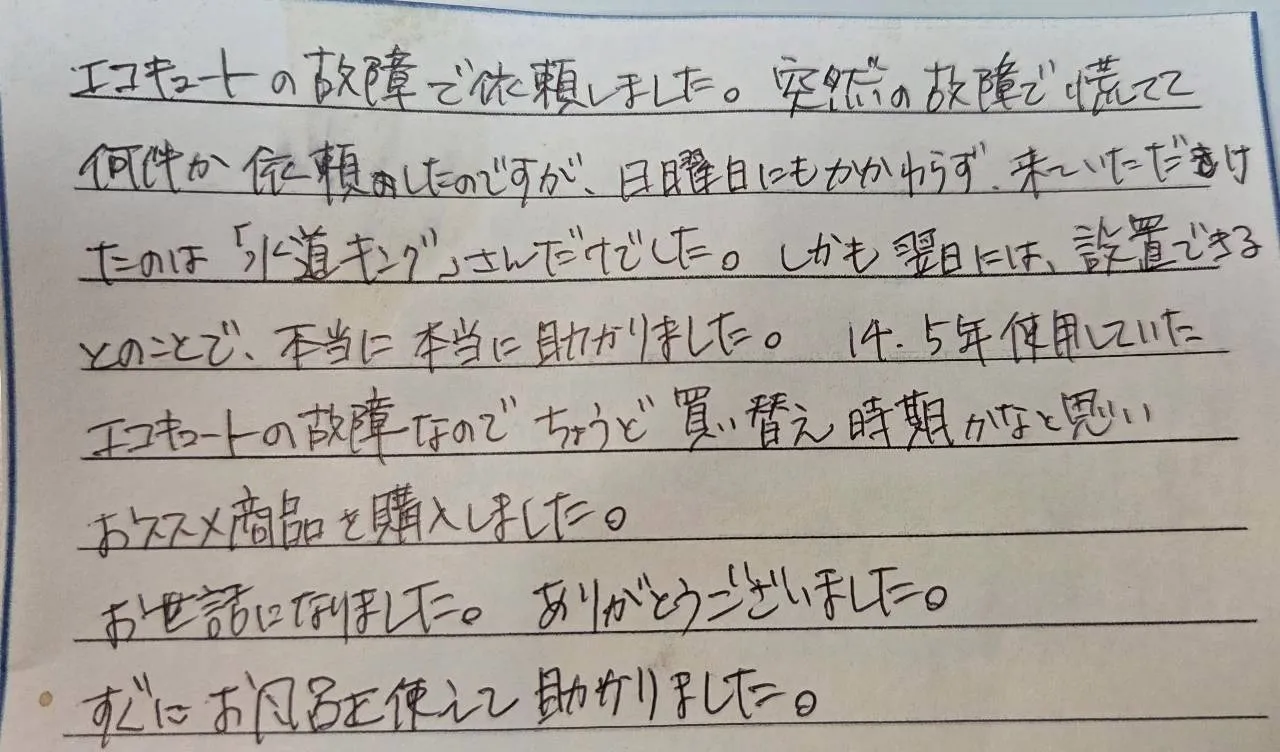 エコキュートの故障で依頼しました。突然の故障で慌てて
何件か依頼したのですが、日曜日にもかかわらず、来ていただけ
たのは「水道キング」さんだけでした。しかも翌日には、設置できる
とのことで、本当に本当に助かりました。 14.5年使用していた
エコキュートの故障なのでちょうど買い替え時期かなと思い
おススメ商品を購入しました。
お世話になりました。ありがとうございました。
すぐにお風呂を使えて助かりました。